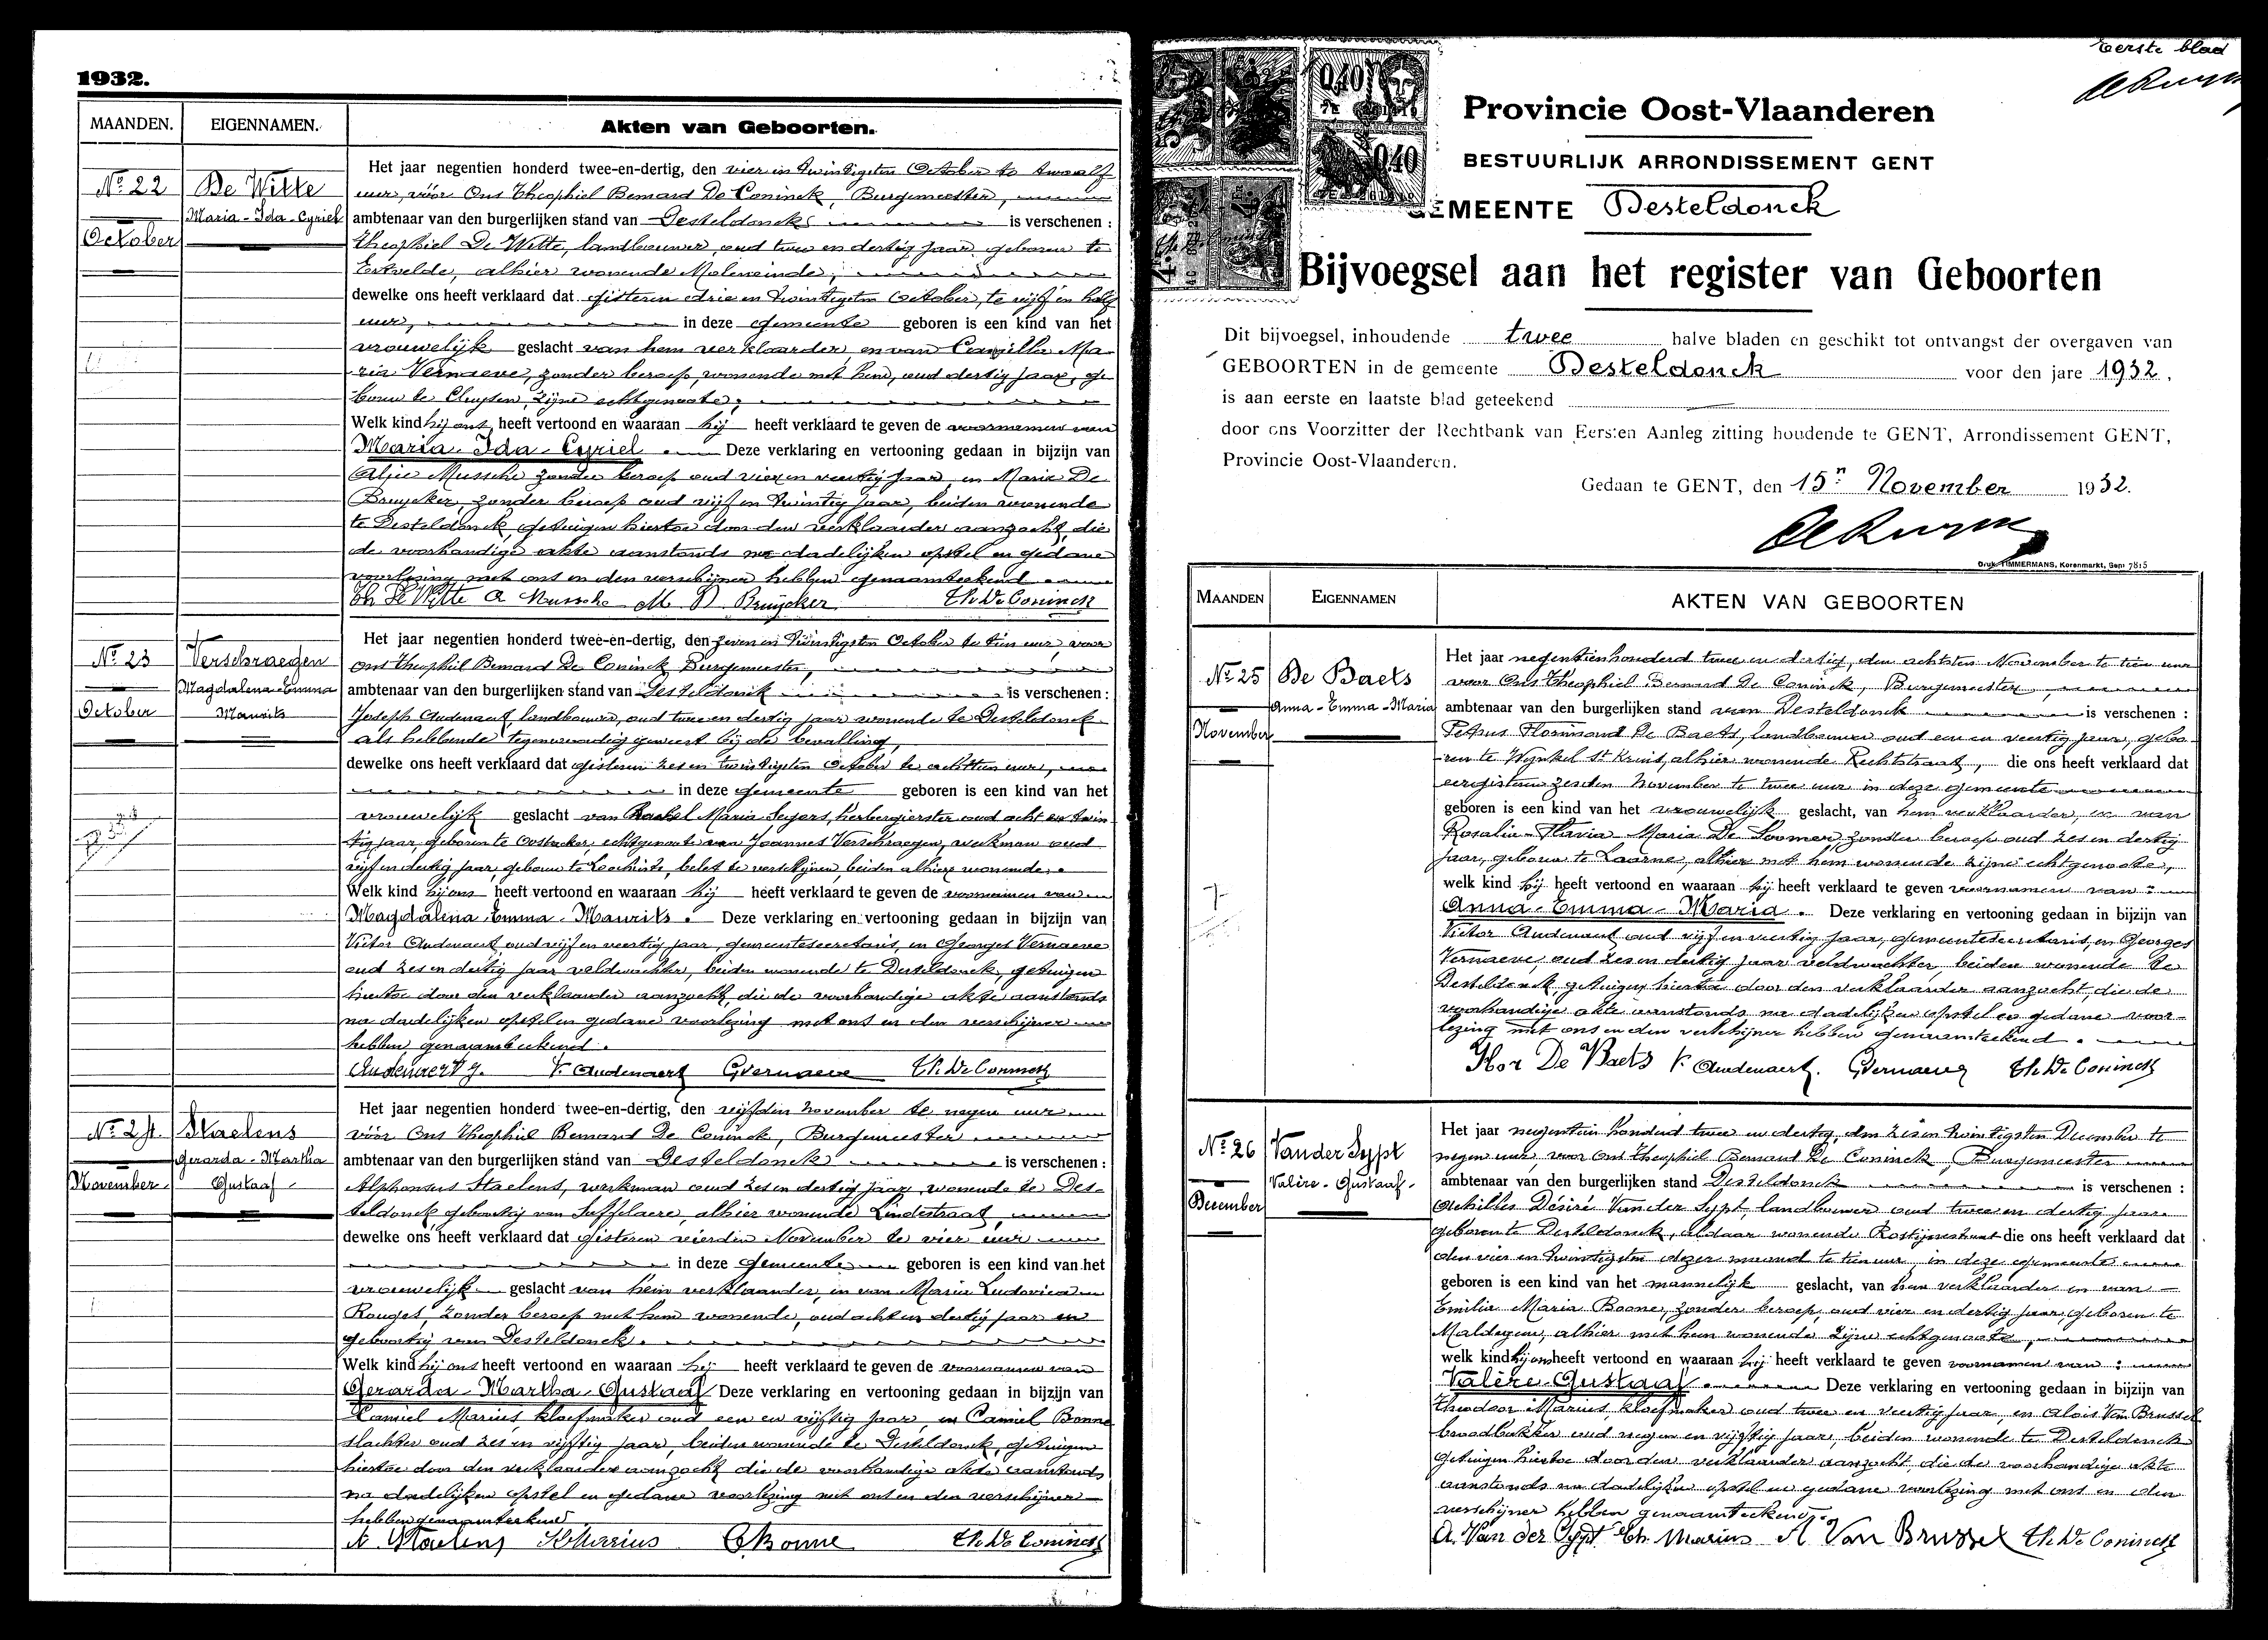 1932.
MAANDEN.
EIGENNAMEN.
Akten van Geboorten.
Nº 22
October
De Witte
Maria-Ida-Cyriel
Het jaar negentien honderd twee-en-dertig, den vier en twintigsten October te twaalf
uur, vóór Ons Theophiel Bernard De Coninck, Burgemeester,
ambtenaar van den burgerlijken stand van Desteldonck is verschenen :
Theophiel De Witte, landbouwer, oud twee en dertig jaar geboren te
Ertvelde, alhier wonende Moleneinde,
dewelke ons heeft verklaard dat gisteren drie en twintigsten October, te vijf en half
uur, in deze gemeente geboren is een kind van het
vrouwelijk geslacht van hem verklaarder, en van Camilla Ma-
ria Vernaeve, zonder beroep, wonende met hem, oud dertig jaar, ge
boren te Cluysen, zijne echtgenoote,
Welk kind hij ons heeft vertoond en waaraan hij heeft verklaard te geven de voornamen van
Maria-Ida-Cyriel. Deze verklaring en vertooning gedaan in bijzijn van
Alice Mussche zonder beroep oud vier en veertig jaar, en Maria De
Bruycker, zonder beroep oud vijf en twintig jaar, beiden wonende
te Desteldonck, getuigen hiertoe door den verklaarder aanzocht, die
de voorhandige akte aanstonds na dadelijken opstel en gedane
voorlezing met ons en den verschijner hebben genaamteekend
Th De Witte A Mussche M D Bruycker Th De Coninck
Nº 23
October
Verschraegen
Magdalena-Emma
Maurits
Het jaar negentien honderd twee-en-dertig, den zeven en twintigsten October te tien uur, voor
ons Theophiel Bernard De Coninck Burgemeester,
ambtenaar van den burgerlijken stand van Desteldonck is verschenen :
Joseph Audenaert, landbouwer, oud twee en dertig jaar wonende te Desteldonck
als hebbende tegenwoordig geweest bij de bevalling,
dewelke ons heeft verklaard dat gisteren zes en twintigsten October te achttien uur,
in deze gemeente geboren is een kind van het
vrouwelijk geslacht van Rachel Maria Seyers, herbergierster oud acht en twin
tig jaar, geboren te Oostacker, echtgenoote van Joannes Verschraegen, werkman oud
vijf en dertig jaar, geboren te Loochristi, belet te verschijnen, beiden alhier wonende.
Welk kind hij ons heeft vertoond en waaraan hij heeft verklaard te geven de voornamen van
Magdalena-Emma-Maurits. Deze verklaring en vertooning gedaan in bijzijn van
Victor Audenaert, oud vijf en veertig jaar, gemeentesecretaris, en Georges Vernaeve
oud zes en dertig jaar veldwachter, beiden wonende te Desteldonck, getuigen
hiertoe door den verklaarder aanzocht, die de voorhandige akte aanstonds
na dadelijken opstel en gedane voorlezing met ons en den verschijner
hebben genaamteekend.
Audenaert J. V. Audenaert GVernaeve Th De Coninck
Nº 24.
November
Staelens
Gerarda-Martha
Gustaaf
Het jaar negentien honderd twee-en-dertig, den vijfden november te negen uur
vóór Ons Theophiel Bernard De Coninck, Burgemeester
ambtenaar van den burgerlijken stand van Desteldonck is verschenen :
Alphonsus Staelens, werkman oud zes en dertig jaar, wonende te Des-
teldonck geboortig van Seffelaere, alhier wonende Lindestraat,
dewelke ons heeft verklaard dat gisteren vierden November te vier uur
in deze gemeente geboren is een kind van het
vrouwelijk geslacht van hem verklaarder, en van Maria Ludovica
Rouget, zonder beroep met hem wonende, oud acht en dertig jaar en
geboortig van Desteldonck.
Welk kind hij ons heeft vertoond en waaraan hij heeft verklaard te geven de voornamen van
Gerarda-Martha-Gustaaf Deze verklaring en vertooning gedaan in bijzijn van
Kamiel Marius, kloefmaker oud een en vijftig jaar, en Camiel Bonne
slachter oud zes en vijftig jaar, beiden wonende te Desteldonck, getuigen
hiertoe door den verklaarder aanzocht die de voorhandige akte aanstonds
na dadelijken opstel en gedane voorlezing met ons en den verschijner
hebben genaamteekend
A Staelens K Marius C Bonne Th De Coninck
Eerste blad
Provincie Oost-Vlaanderen
BESTUURLIJK ARRONDISSEMENT GENT
GEMEENTE Desteldonck
Bijvoegsel aan het register van Geboorten
Dit bijvoegsel, inhoudende twee halve bladen en geschikt tot ontvangst der overgaven van
GEBOORTEN in de gemeente Desteldonck voor den jare 1932,
is aan eerste en laatste blad geteekend
door ons Voorzitter der Rechtbank van Eersten Aanleg zitting houdende te GENT, Arrondissement GENT,
Provincie Oost-Vlaanderen.
Gedaan te GENT, den 15n November 1932.
Druk. TIMMERMANS, Korenmarkt, Gent 7815
MAANDEN
EIGENNAMEN
AKTEN VAN GEBOORTEN
Nº 25
November
De Baets
Anna-Emma-Maria
Het jaar negentienhonderd twee en dertig, den achtsten November te tien uur
voor Ons Theophiel Bernard De Coninck, Burgemeester,
ambtenaar van den burgerlijken stand van Desteldonck is verschenen :
Petrus Florimond De Baets, landbouwer oud een en veertig jaar, gebo-
ren te Wynkel St Kruis, alhier wonende Rechtstraat, die ons heeft verklaard dat
eergisteren zesden November te twee uur in deze gemeente
geboren is een kind van het vrouwelijk geslacht, van hem verklaarder, en van
Rosalia-Flavia Maria De Soomer, zonder beroep oud zes en dertig
jaar, geboren te Laarne, alhier met hem wonende zijne echtgenoote,
welk kind hij heeft vertoond en waaraan hij heeft verklaard te geven voornamen van :
Anna-Emma-Maria. Deze verklaring en vertooning gedaan in bijzijn van
Victor Audenaert oud vijf en veertig jaar, gemeentesecretaris, en Georges
Vernaeve, oud zes en dertig jaar veldwachter, beiden wonende te
Desteldonck, getuigen hiertoe door den verklaarder aanzocht, die de
voorhandige akte aanstonds na dadelijken opstel en gedane voor-
lezing met ons en den verschijner hebben genaamteekend.
Flor De Baets V. Audenaert. GVernaeve Th De Coninck
Nº 26
December
Van der Sypt
Valère-Gustaaf-
Het jaar negentien honderd twee en dertig, den zes en twintigsten December te
negen uur, voor Ons Theophiel Bernard De Coninck, Burgemeester
ambtenaar van den burgerlijken stand Desteldonck is verschenen :
Achilles Désiré Van der Sypt, landbouwer oud twee en dertig jaar
geboren te Desteldonck, aldaar wonende Rostijnestraat die ons heeft verklaard dat
den vier en twintigsten dezer maand te tien uur in deze gemeente
geboren is een kind van het mannelijk geslacht, van hem verklaarder en van
Emilia Maria Boone, zonder beroep, oud vier en dertig jaar, geboren te
Maldegem, alhier met hem wonende zijne echtgenoote,
welk kind hij ons heeft vertoond en waaraan hij heeft verklaard te geven voornamen van :
Valère-Gustaaf. Deze verklaring en vertooning gedaan in bijzijn van
Theodoor Marius kloefmaker oud twee en veertig jaar, en Alois Van Brussel
broodbakker oud negen en vijftig jaar, beiden wonende te Desteldonck
getuigen hiertoe door den verklaarder aanzocht, die de voorhandige akte
aanstonds na dadelijken opstel en gedane voorlezing met ons en den
verschijner hebben genaamteekend.
A. Van der Sypt Th. Marius A Van Brussel Th De Coninck